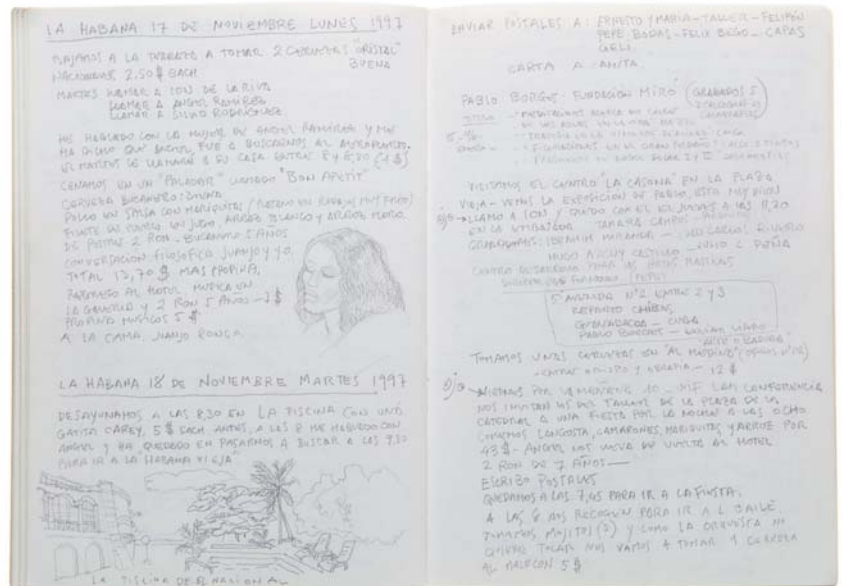 LA HABANA 17 DE NOVIEMBRE LUNES 1997
BAJAMOS A LA TERRAZA A TOMAR 2 CERVEZAS "CRISTAL"
NACIONALES 2,50 $ EACH. BUENA
MARTES LLAMAR A ION DE LA RIVA
LLAMAR A ANGEL RAMÍREZ
LLAMAR A SILVIO RODRÍGUEZ
HE HABLADO CON LA MUJER DE ANGEL RAMÍREZ Y ME
HA DICHO QUE ANGEL, FUE A BUSCARNOS AL AEROPUERTO.
EL MARTES LE LLAMARÉ A SU CASA ENTRE 8 Y 8,30 (1 $)
CENAMOS EN UN "PALADAR" LLAMADO "BON APETIT"
CERVEZA BUCANERO: BUENA
POLLO EN SALSA CON MARIQUITAS (MUY FINO)
FILETE DE CERDO, EN JUGO, ARROZ BLANCO Y ARROZ MORO.
DE POSTRE 2 RON - BUCANERO 5 AÑOS
CONVERSACIÓN FILOSOFICA JUANJO Y YO.
TOTAL 13,70 $ MAS PROPINA,
REGRESO AL HOTEL. MUSICA EN
LA GALERIA Y 2 RON 5 AÑOS - $
PROPINA MUSICOS 5 $
A LA CAMA. JUANJO RONCA.
LA HABANA 18 DE NOVIEMBRE MARTES 1997
DESAYUNAMOS A LAS 8,30 EN LA PISCINA CON UNA
GATITA CAREY. 5 $ EACH ANTES, A LAS 8 HE HABLADO CON
ANGEL Y HA QUEDADO EN PASARNOS A BUSCAR A LAS 9,30
PARA IR A LA "HABANA VIEJA"
LA PISCINA DE EL NACIONAL
ENVIAR POSTALES A: ERNESTO Y MARIA - TALLER - FELIPÓN
PEPE BODAS - FELIX BEGO - CAPAS
GELI.
CARTA A ANITA
PABLO BORGES - FUNDACIÓN MIRÓ (GRABADOS 5
VISITAMOS EL CENTRO "LA CASONA" EN LA PLAZA
VIEJA - VEMOS LA EXPOSICIÓN DE PABLO, ESTA MUY BIEN
OJO → LLAMO A ION Y QUEDO CON EL EL JUEVES A LAS 11,30
EN LA EMBAJADA TAMARA CAMPO
GRABADORES: IBRAHIM MIRANDA - LUIS CARLOS RIVERO
HUGO AZCUY CASTILLO - JULIO C PEÑA
CENTRO DE DESARROLLO PARA LAS ARTES PLASTICAS
5 AVENIDA Nº 2 ENTRE 2 Y 3
REPARTO CHIBÁS
GUANABACOA - CUBA
PABLO BORGES
TOMAMOS UNAS CERVEZAS EN "AL MEDINA" (OFICIOS Nº 12)
ENTRE OBISPO Y OBRAPÍA - 12 $
OJO → CONFERENCIA
NOS INVITAN LOS DEL TALLER DE LA PLAZA DE LA
CATEDRAL A UNA FIESTA POR LA NOCHE A LAS OCHO
COMEMOS LANGOSTA, CAMARONES, MARIQUITAS Y ARROZ POR
43 $ - ANGEL NOS LLEVA DE VUELTA AL HOTEL
2 RON DE 7 AÑOS
ESCRIBO POSTALES
QUEDAMOS A LAS 7,45 PARA IR A LA FIESTA.
A LAS 8 NOS RECOGEN PARA IR AL BAILE.
TOMAMOS MOJITOS (2) Y COMO LA ORQUESTA NO
QUIERE TOCAR NOS VAMOS A TOMAR 1 CERVEZA
AL MALECON 5 $